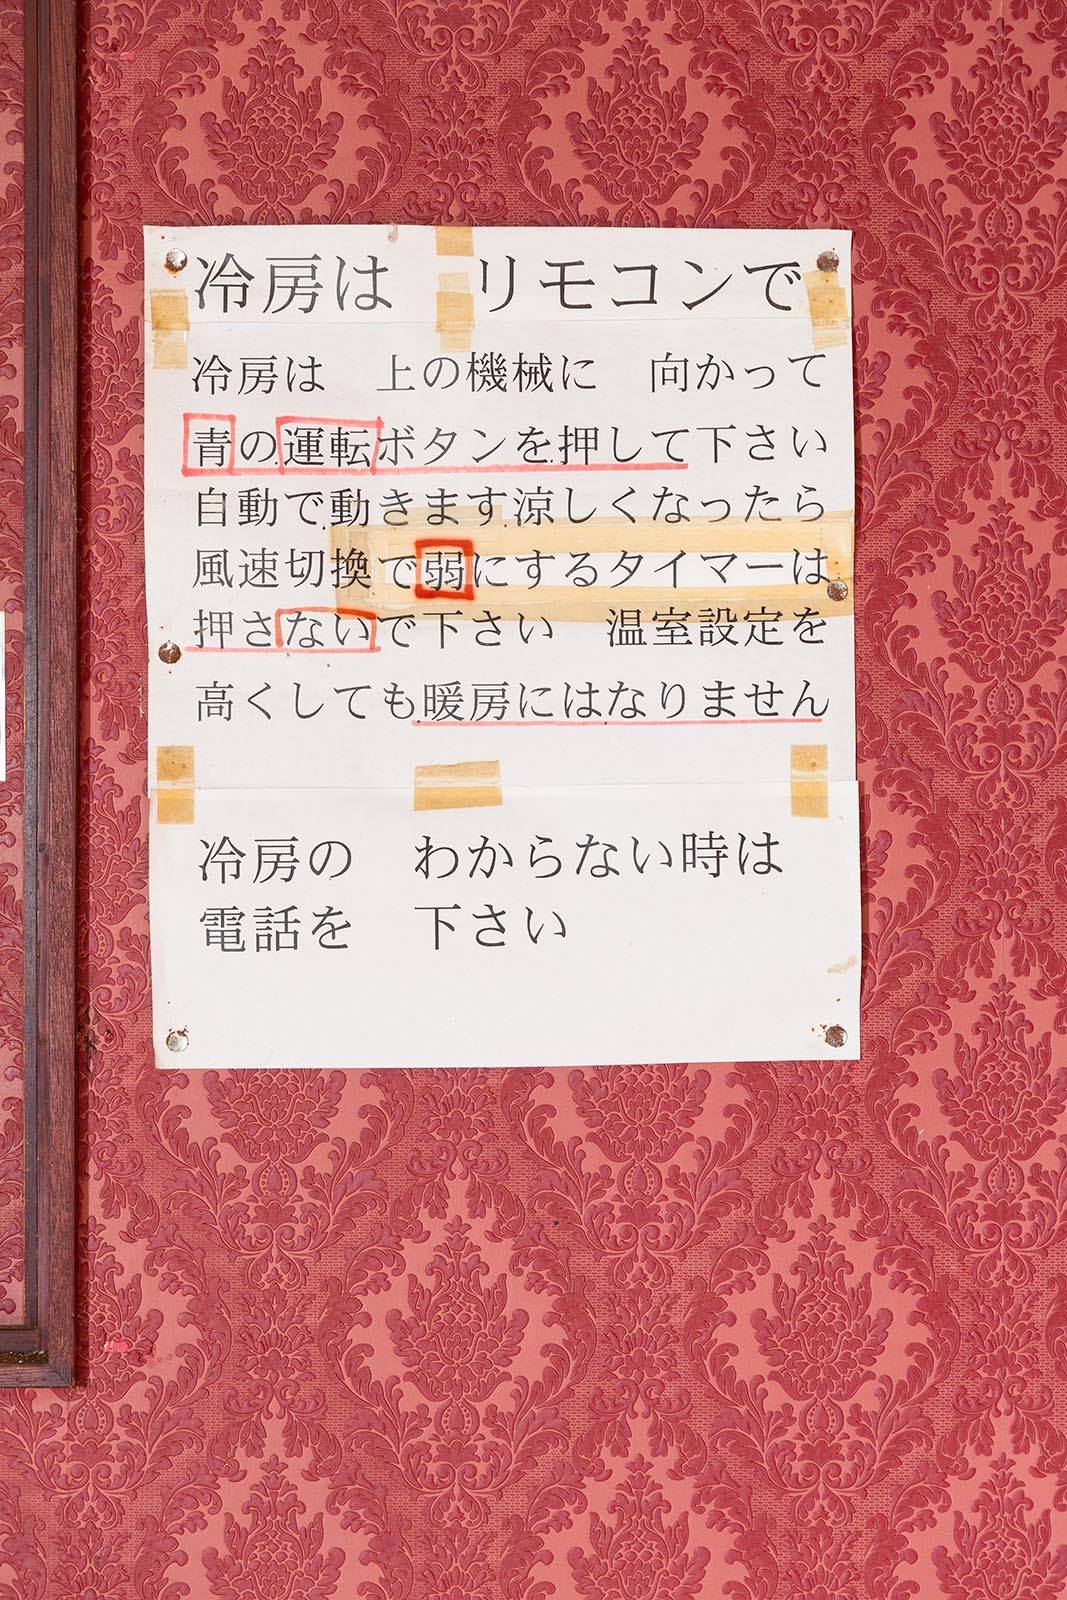 冷房は　リモコンで
冷房は　上の機械に　向かって
青の運転ボタンを押して下さい
自動で動きます涼しくなったら
風速切換で弱にするタイマーは
押さないで下さい　温室設定を
高くしても暖房にはなりません
冷房の　わからない時は
電話を　下さい